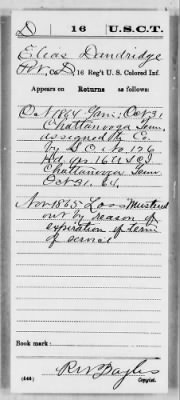 D 16 U.S.C.T.
Elias Dandridge
Pvt., Co. D, 16 Reg't U. S. Colored Inf.
Appears on
Returns as follows:
Oct 1864 Gain: Oct 31
Chattanooga Tenn,
assigned to Co
by S.O. No 126
Hd. Qrs 16 U.S.C.I
Chattanooga Tenn
Oct 31. 64.
Nov 1865 Loss Mustered
out by reason of
expiration of term
of service
Book mark:
(448)
Copyist.